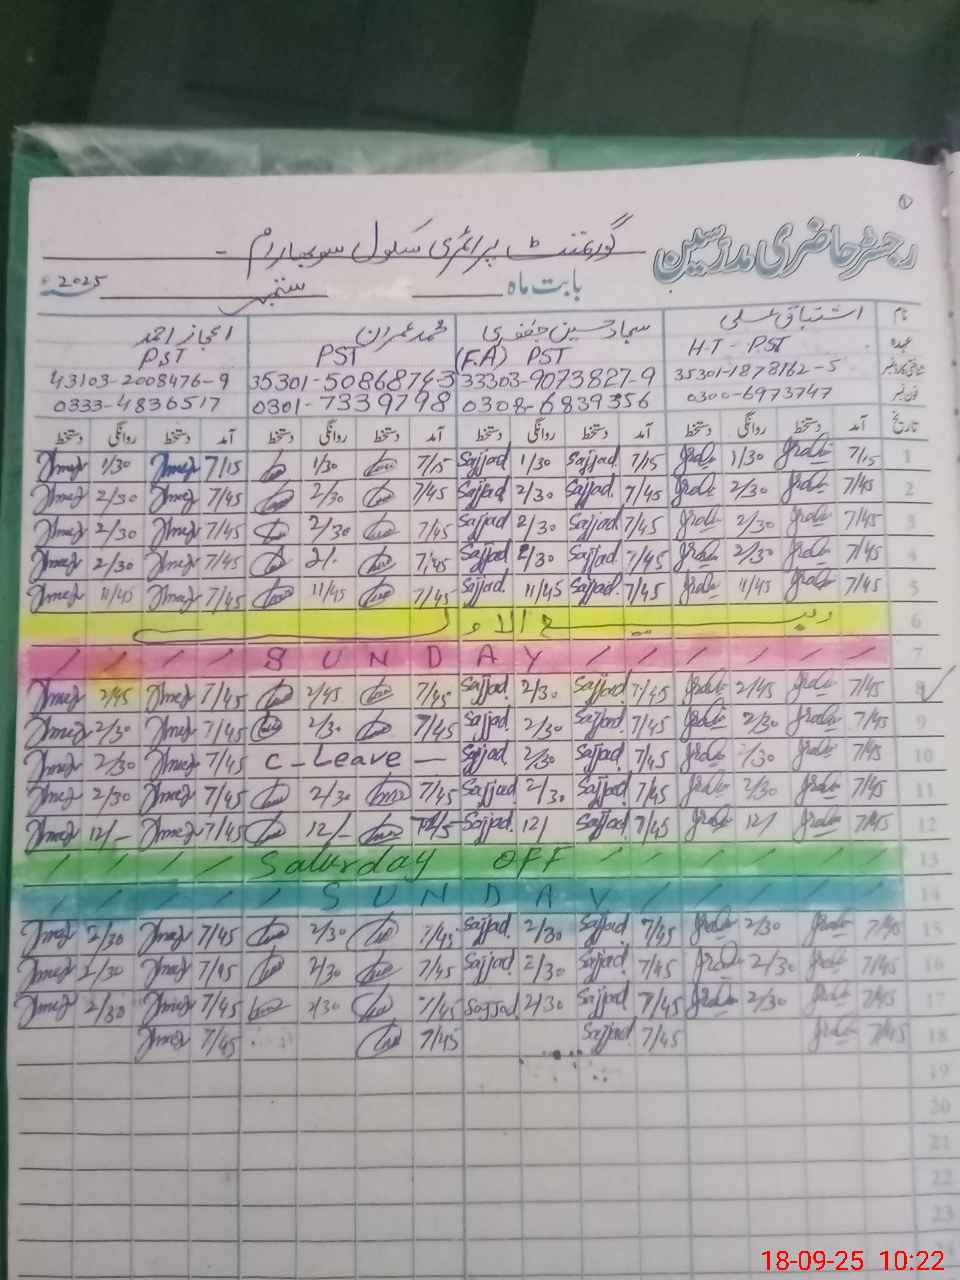 رجسٹر حاضری مدرسین
گورنمنٹ پرائمری سکول
بابت ماہ ستمبر 2025
نام اشتیاق علی سجاد حسین جعفری محمد عمران اعجاز احمد
عہدہ H.T - PST (F.A) PST PST PST
35301-1878162-5 33303-9073827-9 35301-5086874-3 43103-2008476-9
فون نمبر 0300-6973747 0308-6839356 0301-7339798 0333-4836517
تاریخ آمد دستخط روانگی دستخط آمد دستخط روانگی دستخط آمد دستخط روانگی دستخط آمد دستخط روانگی دستخط
1 7/15 1/30 7/15 Sajjad 1/30 Sajjad 7/15 1/30 7/15 Ahmed 1/30 Ahmed
2 7/45 2/30 7/45 Sajjad 2/30 Sajjad 7/45 2/30 7/45 Ahmed 2/30 Ahmed
3 7/45 2/30 7/45 Sajjad 2/30 Sajjad 7/45 2/30 7/45 Ahmed 2/30 Ahmed
4 7/45 2/30 7/45 Sajjad 2/30 Sajjad 7/45 7/45 Ahmed 2/30 Ahmed
5 7/45 11/45 7/45 Sajjad 11/45 Sajjad 7/45 11/45 7/45 Ahmed 11/45 Ahmed
6 ربیع الاول
7 SUNDAY
8 7/45 2/45 7/45 Sajjad 2/30 Sajjad 7/45 2/45 7/45 Ahmed 2/45 Ahmed
9 7/45 2/30 7/45 Sajjad 2/30 Sajjad 7/45 2/30 7/45 Ahmed 2/30 Ahmed
10 7/45 2/30 7/45 Sajjad 2/30 Sajjad C-Leave 7/45 Ahmed 2/30 Ahmed
11 7/45 2/30 7/45 Sajjad 2/30 Sajjad 7/45 2/30 7/45 Ahmed 2/30 Ahmed
12 7/45 12/ 7/45 Sajjad 12/ Sajjad 12/- 7/45 Ahmed 12/- Ahmed
13 Saturday OFF
14 SUNDAY
15 7/45 2/30 7/45 Sajjad 2/30 Sajjad 7/45 2/30 7/45 Ahmed 2/30 Ahmed
16 7/45 2/30 7/45 Sajjad 2/30 Sajjad 7/45 2/30 7/45 Ahmed 2/30 Ahmed
17 7/45 2/30 7/45 Sajjad 2/30 Sajjad 7/45 2/30 7/45 Ahmed 2/30 Ahmed
18 7/45 7/45 Sajjad 7/45 7/45 Ahmed
19
20
21
22
23
18-09-25 10:22